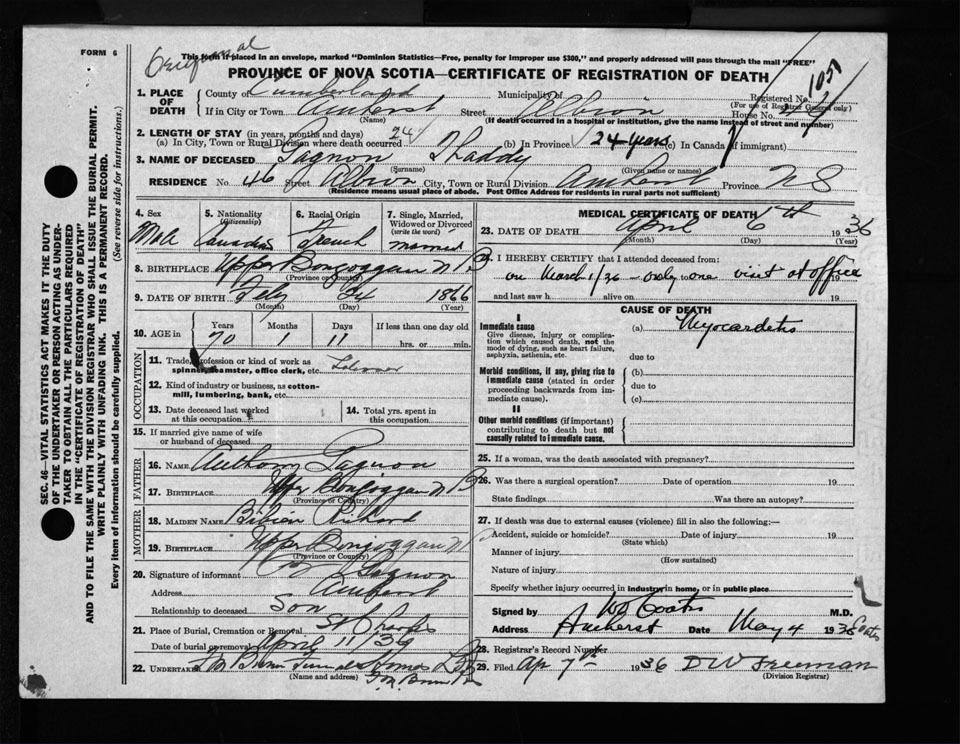 FORM 6
This form if placed in an envelope, marked "Dominion Statistics—Free, penalty for improper use $300," and properly addressed will pass through the mail "FREE"
PROVINCE OF NOVA SCOTIA—CERTIFICATE OF REGISTRATION OF DEATH
SEC. 46—VITAL STATISTICS ACT MAKES IT THE DUTY
OF THE UNDERTAKER OR PERSON ACTING AS UNDER-
TAKER TO OBTAIN ALL THE PARTICULARS REQUIRED
IN THE "CERTIFICATE OF REGISTRATION OF DEATH"
AND TO FILE THE SAME WITH THE DIVISION REGISTRAR WHO SHALL ISSUE THE BURIAL PERMIT.
WRITE PLAINLY WITH UNFADING INK. THIS IS A PERMANENT RECORD.
Every item of information should be carefully supplied. (See reverse side for instructions.)
1. PLACE OF DEATH County of Cumberland Municipality of Registered No. 1057
(For use of Registrar General only)
If in City or Town Amherst Street Albion House No.
(Name) (If death occurred in a hospital or institution, give the name instead of street and number)
2. LENGTH OF STAY (in years, months and days)
(a) In City, Town or Rural Division where death occurred 24 (b) In Province 24 years (c) In Canada (if immigrant)
3. NAME OF DECEASED Gagnon Thaddy
(Surname) (Given name or names)
RESIDENCE No. 46 Street Albion City, Town or Rural Division Amherst Province N S
(Residence means usual place of abode. Post Office Address for residents in rural parts not sufficient)
4. Sex 5. Nationality (Citizenship) 6. Racial Origin 7. Single, Married, Widowed or Divorced (write the word)
Male Canadian French Married
8. BIRTHPLACE Upper N B
(Province or Country)
9. DATE OF BIRTH Feby 24 1866
(Month) (Day) (Year)
10. AGE in Years Months Days If less than one day old
70 1 11 hrs. or min.
OCCUPATION
11. Trade, profession or kind of work as spinner, teamster, office clerk, etc. Laborer
12. Kind of industry or business, as cotton-mill, lumbering, bank, etc.
13. Date deceased last worked at this occupation 14. Total yrs. spent in this occupation
15. If married give name of wife or husband of deceased
FATHER
16. NAME Anthony Gagnon
17. BIRTHPLACE Upper N B
(Province or Country)
MOTHER
18. MAIDEN NAME Richard
19. BIRTHPLACE Upper N
(Province or Country)
20. Signature of informant Gagnon
Address Amherst
Relationship to deceased Son
21. Place of Burial, Cremation or Removal St Charles
Date of burial or removal April 11/36
22. UNDERTAKER Brown
(Name and address)
MEDICAL CERTIFICATE OF DEATH
23. DATE OF DEATH April 6th 1936
(Month) (Day) (Year)
24. I HEREBY CERTIFY that I attended deceased from:
on March 1/36 – only to one visit at office
and last saw h alive on 19
CAUSE OF DEATH
I
Immediate cause (a) Myocarditis
Give disease, injury or complication which caused death, not the mode of dying, such as heart failure, asphyxia, asthenia, etc. due to
Morbid conditions, if any, giving rise to immediate cause (stated in order proceeding backwards from immediate cause). (b)
due to
(c)
II
Other morbid conditions (if important) contributing to death but not causally related to immediate cause.
25. If a woman, was the death associated with pregnancy?
26. Was there a surgical operation? Date of operation 19
State findings Was there an autopsy?
27. If death was due to external causes (violence) fill in also the following:—
Accident, suicide or homicide? Date of injury 19
(State which)
Manner of injury
(How sustained)
Nature of injury
Specify whether injury occurred in industry, in home, or in public place
Signed by Coates M.D.
Address Amherst Date May 4 1936 Coates
28. Registrar's Record Number
29. Filed Ap 7th 1936 D W Freeman
(Division Registrar)